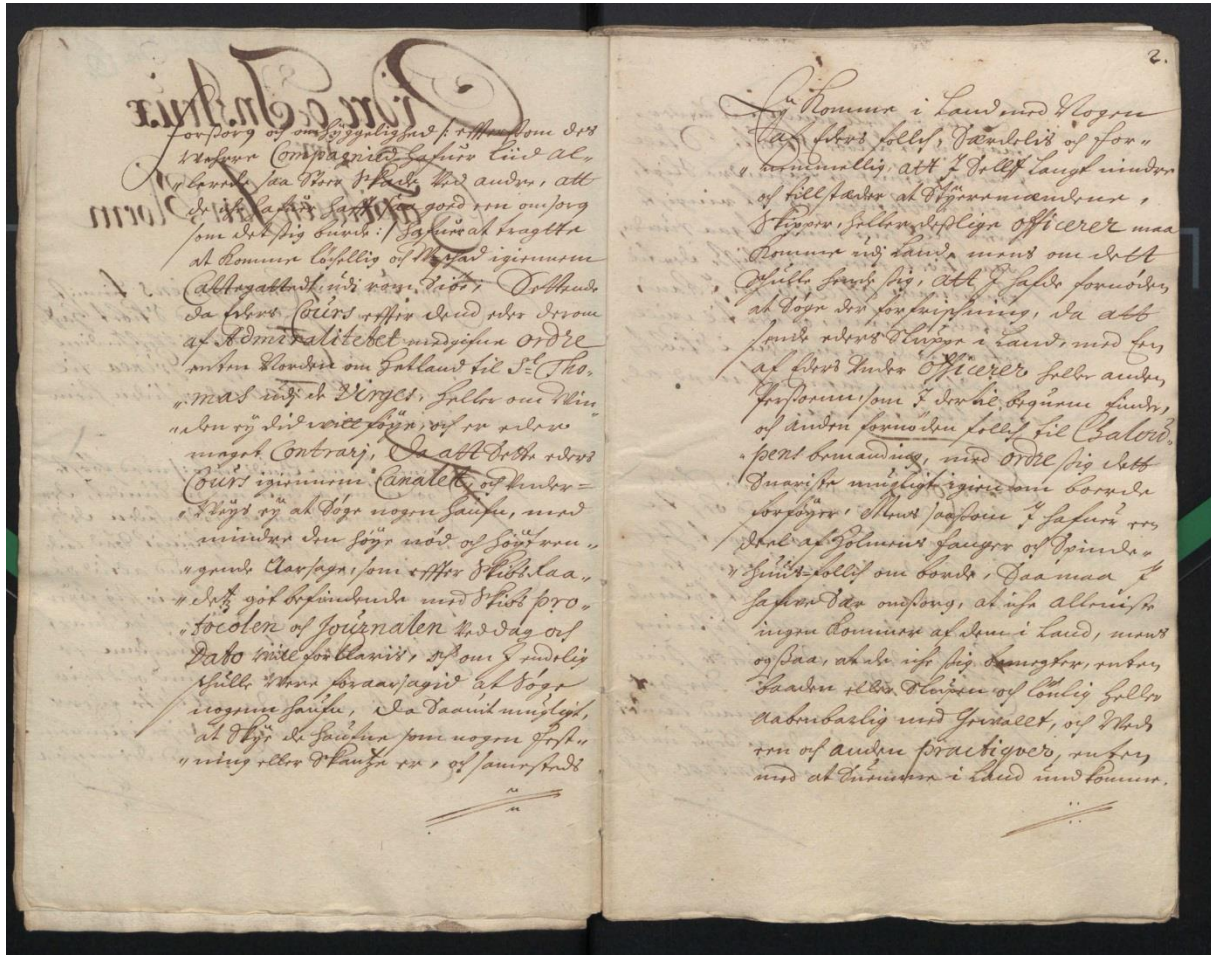 forsorg og omhyggelighed /: efftersom det
Wehrre Compagniet hafuer liid al-
"lerede saa stoer skade ved andre, att
de ej hafuer hafft saa goed een omsorg
som det sig burde :/ hafuer at tragtte
at komme løchellig och
Cattegattedt udi rom Søe; Settende
da Eders Cours effter dend eder derom
af Admiralitetet medgifne ordre
enten Norden om Hetland til St. Tho-
"mas udj de Virges, heller om Win-
"den ey did will føye, och er eder
meget Contrarj, da att sette eders
Cours igiennem Canalet, och under-
"Weys ey at Søge nogen haufn, med
mindre den høye nød och høytren-
"gende Aarsage, som effter Skibs Raa-
"dets got befindende med Skibs pro-
"tocolen och Journalen ved dag och
Dato will forklaris, och om I endelig
schulle were foraarsagid at Søge
nogenn haufn, da Saauit mugligt,
at Skye de haufne som nogen fest-
"ning eller Skantze er, och samesteds
2.
Ey komme i Land med Nogen
af Eders follch, Særdelis och for-
"nemmelig, att I Sellff langt mindre
och tillstæder at Styrremændene,
Skipper, heller deslige officerer maa
komme udj Land, mens om dett
schulle hende sig, att I hafde fornøden
at Søge der forfrischning, da att
sende eders Sluppe i Land, med Een
af Eders Under Officerer heller anden
Persoenn, som I dertil bequem finder,
och anden fornøden follch til Chalou-
"pens bemanding, med ordre sig dett
Snariste mugligt igien om boerde
forføyer. Mens saasom I hafuer een
deel af Holmens fanger och Spinde-
"huus-follch om borde, Saa maa I
hafue Sær omsorg, at iche alleniste
ingen kommer af dem i Land, mens
ogsaa, at de iche sig bemegter, enten
baaden eller Sluppen och lønlig heller
aabenbarlig med Gewallt, och Wed
een och anden practiqver, enten
med at Suemme i Land undkomme.